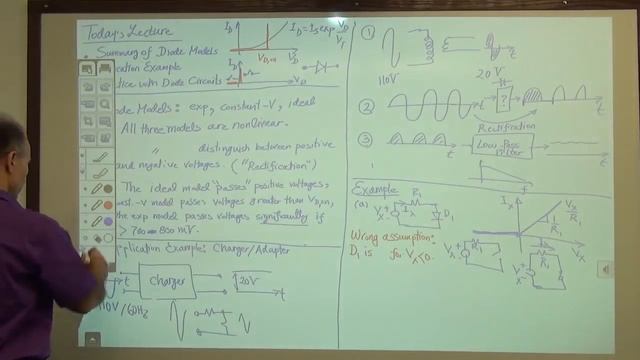 Today's Lecture
• Summary of Diode Models
ication Example
tice with Diode Circuits
I_D
V_D,on
V_D
I_D = I_S exp V_D/V_T
V_D
ode Models: exp, constant-V, ideal
All three models are nonlinear.
" distinguish between positive
and negative voltages. ("Rectification")
The ideal model "passes" positive voltages,
nst.-V model passes voltages greater than V_D,on,
the exp model passes voltages significantly if
> 700-800 mV.
pplication Example: Charger/Adapter
110V/60Hz
t
Charger
20V
t
1
110V
t
20V
2
t
?
t
Rectification
3
t
Low-Pass
Filter
t
f
Example
(a)
V_X
I_X
R_1
D_1
I_X
V_X/R_1
1/R_1
V_X
Wrong assumption:
D_1 is for V_X<0.
V_X
R_1
V_X
R_1